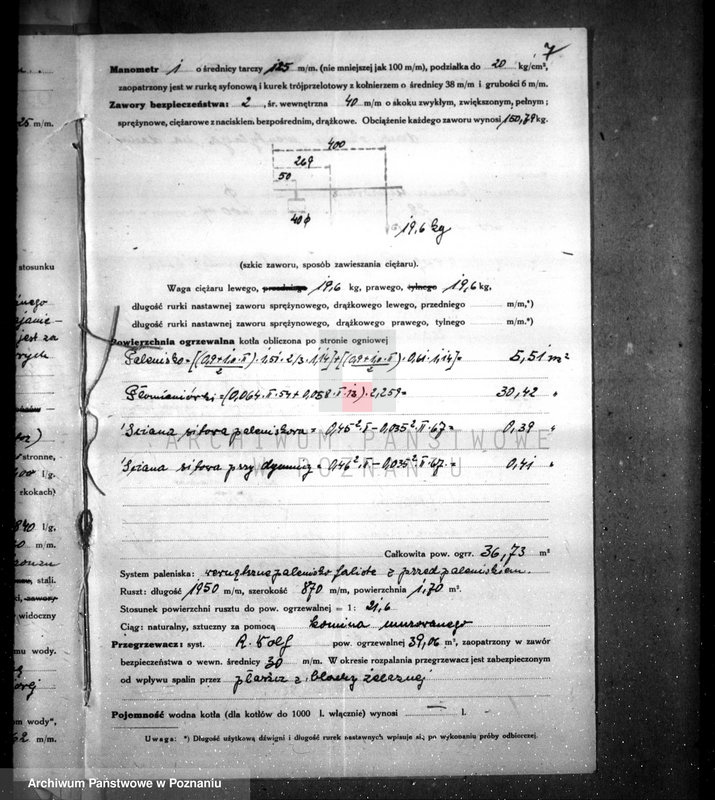 7
Manometr 1 o średnicy tarczy 125 m/m. (nie mniejszej jak 100 m/m), podziałka do 20 kg/cm²,
zaopatrzony jest w rurkę syfonową i kurek trójprzelotowy z kołnierzem o średnicy 38 m/m i grubości 6 m/m.
Zawory bezpieczeństwa: 2, śr. wewnętrzna 40 m/m o skoku zwykłym, zwiększonym, pełnym;
sprężynowe, ciężarowe z naciskiem bezpośrednim, drążkowe. Obciążenie każdego zaworu wynosi 150,79 kg.
400
269
50
40 ϕ
19,6 kg
(szkic zaworu, sposób zawieszania ciężaru).
Waga ciężaru lewego, przedniego 19,6 kg, prawego, tylnego 19,6 kg,
długość rurki nastawnej zaworu sprężynowego, drążkowego lewego, przedniego m/m,*)
długość rurki nastawnej zaworu sprężynowego, drążkowego prawego, tylnego m/m.*)
Powierzchnia ogrzewalna kotła obliczona po stronie ogniowej
Palenisko = 5,51 m²
Płomieniówki = (0,064·π·54+0,058·π·13)·2,259= 30,42 "
Ściana sitowa paleniskowa = 0,45²·π−0,035²·π·67= 0,39 "
Ściana sitowa przy dymnicy = 0,46²·π−0,035²·π·67= 0,41 "
ARCHIWUM PAŃSTWOWE
W POZNANIU
Całkowita pow. ogrz. 36,73 m²
System paleniska: wewnętrzne palenisko faliste z przedpaleniskiem.
Ruszt: długość 1950 m/m, szerokość 870 m/m, powierzchnia 1,70 m².
Stosunek powierzchni rusztu do pow. ogrzewalnej = 1: 21,6
Ciąg: naturalny, sztuczny za pomocą komina murowanego
Przegrzewacz: syst. R. Wolf pow. ogrzewalnej 39,06 m², zaopatrzony w zawór
bezpieczeństwa o wewn. średnicy 30 m/m. W okresie rozpalania przegrzewacz jest zabezpieczonym
od wpływu spalin przez płaszcz z blachy żelaznej
Pojemność wodna kotła (dla kotłów do 1000 l. włącznie) wynosi — l.
Uwaga: *) Długość użytkową dźwigni i długość rurek nastawnych wpisuje się po wykonaniu próby odbiorczej.
25 m/m.
stosunku
jest za
stronne,
l/g.
rkokach)
840 l/g,
m/m.
stali.
widoczny
mu wody.
om wody",
62 m/m.
Archiwum Państwowe w Poznaniu